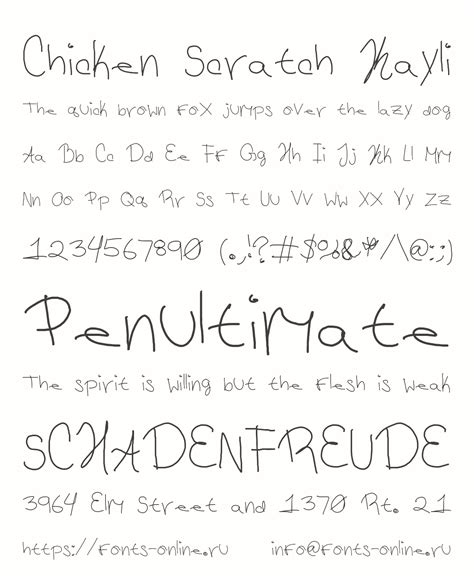 Chicken Scratch Kayli
The quick brown fox jumps over the lazy dog
Aa Bb Cc Dd Ee Ff Gg Hh Ii Jj Kk Ll Mm
Nn Oo Pp Qq Rr Ss Tt Uu Vv Ww Xx Yy Zz
1234567890 (.,!?#$%&*/\@:;)
Penultimate
The spirit is willing but the flesh is weak
SCHADENFREUDE
3964 Elm Street and 1370 Rt. 21
https://fonts-online.ru info@fonts-online.ru